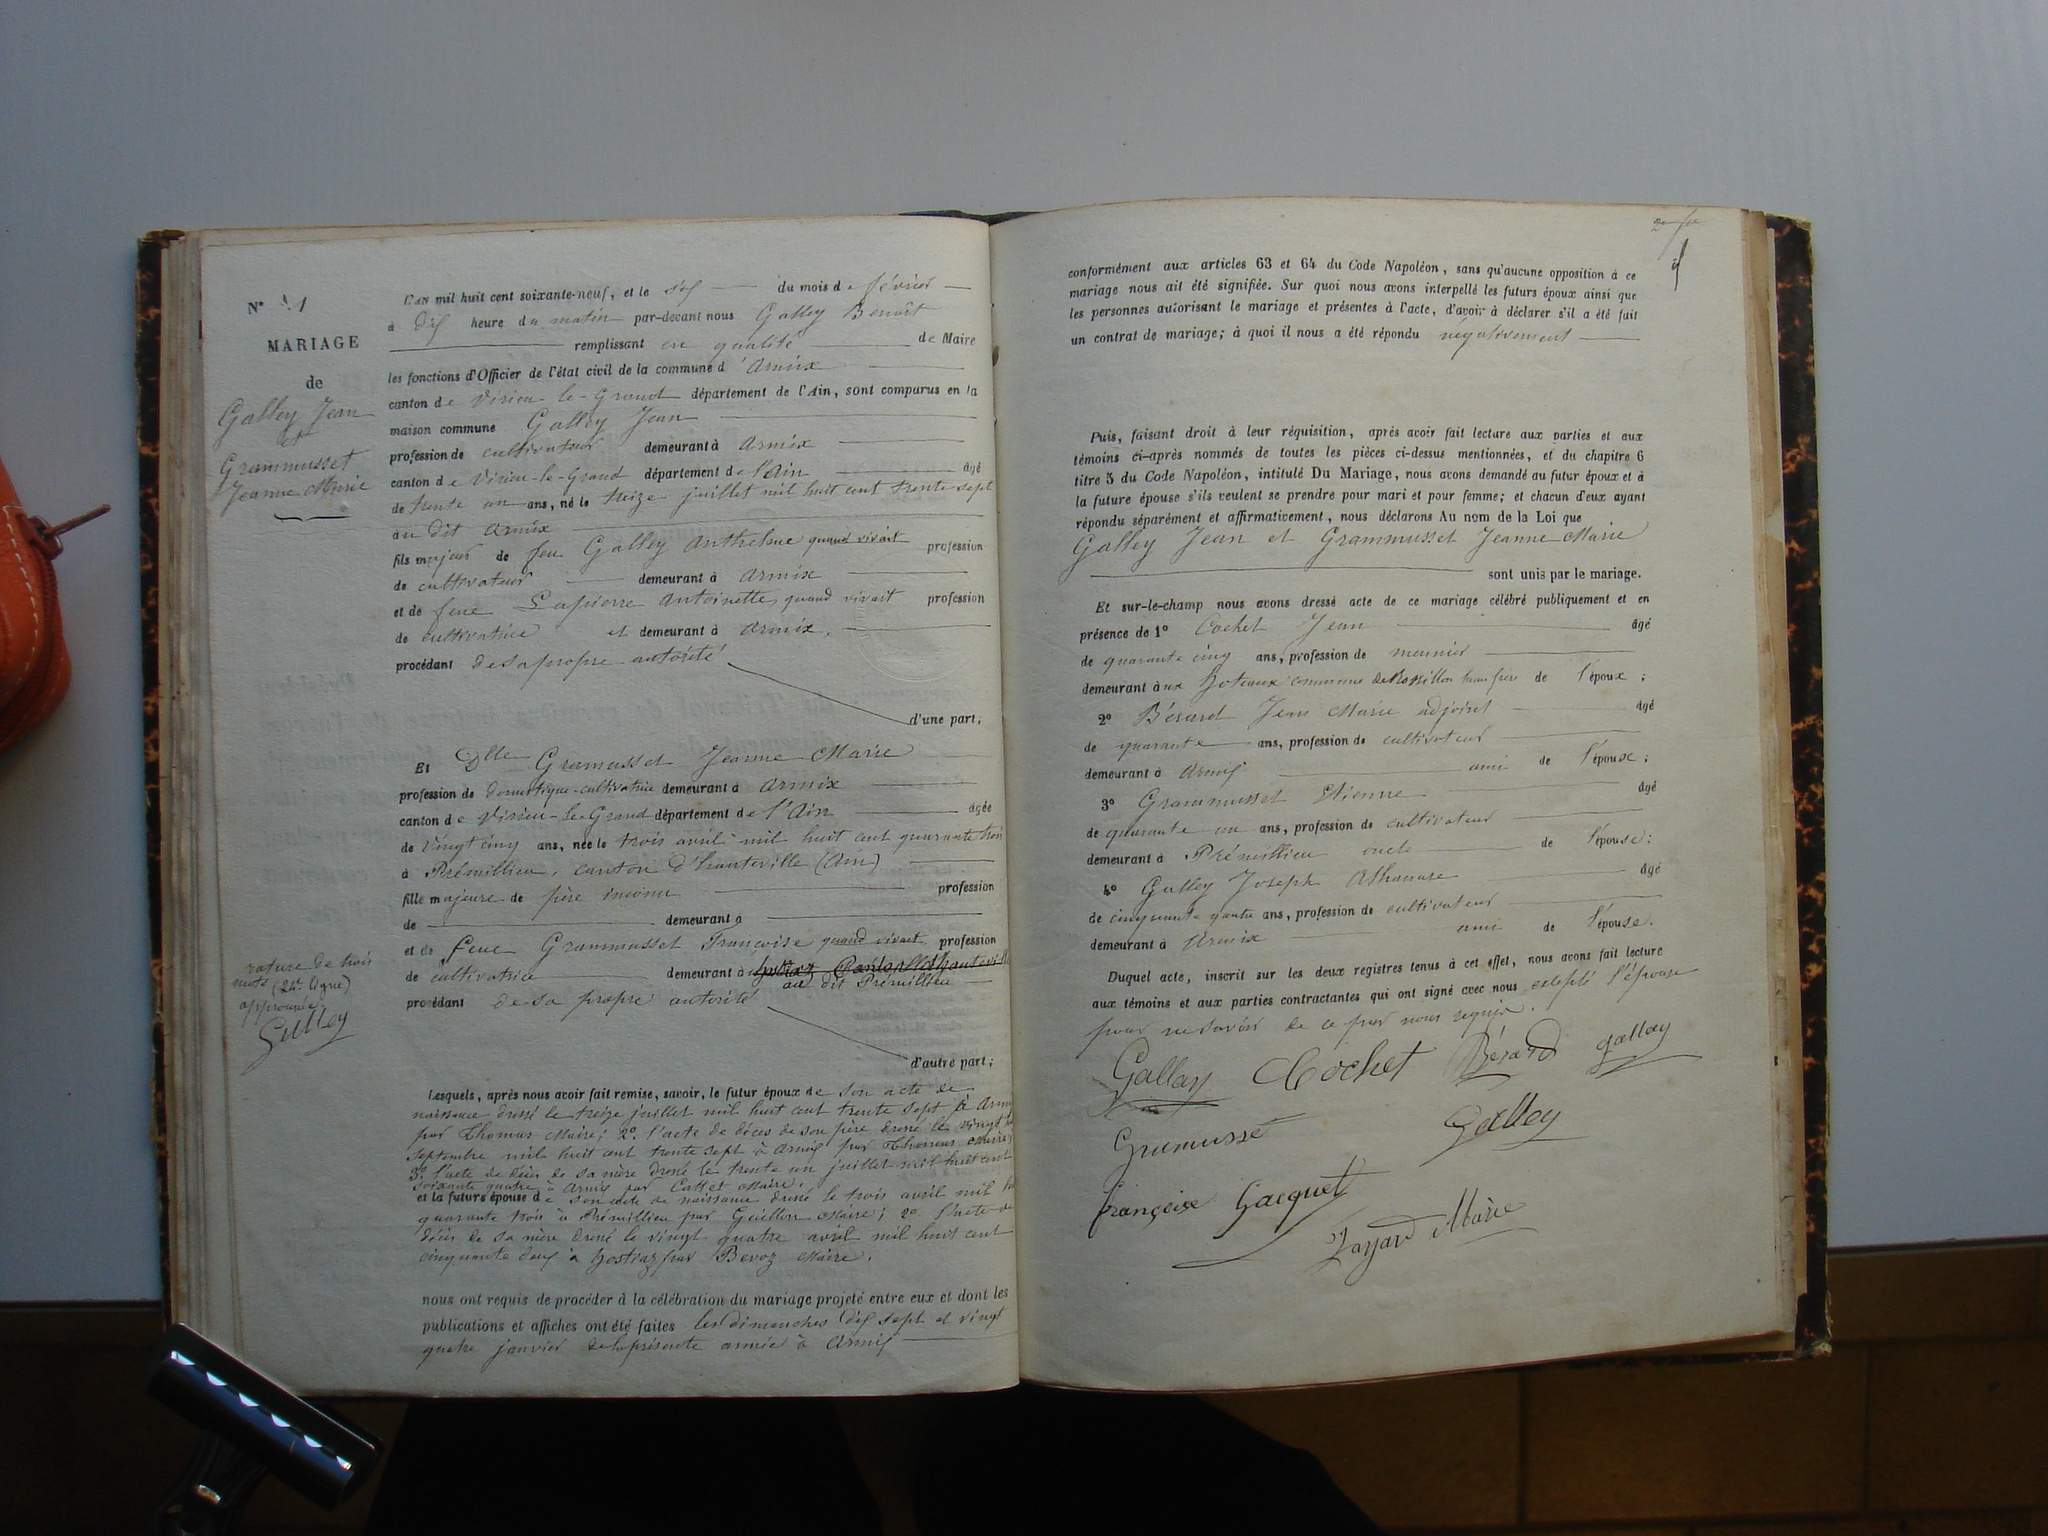 N° 1
MARIAGE
de
Galley Jean
et
Grammusset
Jeanne Marie
L'an mil huit cent soixante-neuf, et le dix du mois de février
à dix heure du matin par-devant nous Galley Benoit
remplissant en qualité de Maire
les fonctions d'Officier de l'état civil de la commune d'Armix
canton de Virieu-le-Grand département de l'Ain, sont comparus en la
maison commune Galley Jean
profession de cultivateur demeurant à Armix
canton de Virieu-le-Grand département de l'Ain âgé
de trente un ans, né le treize juillet mil huit cent trente sept
au dit Armix
fils majeur de feu Galley Anthelme quand vivait profession
de cultivateur demeurant à Armix
et de feue Lapierre Antoinette, quand vivait profession
de cultivatrice et demeurant à Armix,
procédant de sa propre autorité
d'une part;
Et Dlle Gramusset Jeanne Marie
profession de domestique-cultivatrice demeurant à Armix
canton de Virieu-le-Grand département de l'Ain âgée
de vingt cinq ans, née le trois avril mil huit cent quarante trois
à Prémillieu, canton d'hauteville (Ain)
fille majeure de père inconnu profession
de demeurant à
et de feue Grammusset Françoise quand vivait profession
de cultivatrice demeurant à hostiaz Canton d'hauteville
au dit Prémillieu
procédant de sa propre autorité
d'autre part;
rature de trois
mots (24e ligne)
approuvée
Galley
Lesquels, après nous avoir fait remise, savoir, le futur époux de son acte de
naissance dressé le treize juillet mil huit cent trente sept à Armix
par Thomas Maire; 2° l'acte de décès de son père dressé le vingt
septembre mil huit cent trente sept à Armix par Thomas Maire;
3° l'acte de décès de sa mère dressé le trente un juillet mil huit cent
soixante quatre à Armix par Maire.
et la future épouse de son acte de naissance dressé le trois avril mil
quarante trois à Prémillieu par Guillon Maire; 2° l'acte de
décès de sa mère dressé le vingt quatre avril mil huit cent
cinquante deux à hostiaz par Bevoz Maire.
nous ont requis de procéder à la célébration du mariage projeté entre eux et dont les
publications et affiches ont été faites les dimanches dix sept et vingt
quatre janvier de la présente année à Armix
2e
conformément aux articles 63 et 64 du Code Napoléon, sans qu'aucune opposition à ce
mariage nous ait été signifiée. Sur quoi nous avons interpellé les futurs époux ainsi que
les personnes autorisant le mariage et présentes à l'acte, d'avoir à déclarer s'il a été fait
un contrat de mariage; à quoi il nous a été répondu négativement
Puis, faisant droit à leur réquisition, après avoir fait lecture aux parties et aux
témoins ci-après nommés de toutes les pièces ci-dessus mentionnées, et du chapitre 6
titre 5 du Code Napoléon, intitulé Du Mariage, nous avons demandé au futur époux et à
la future épouse s'ils veulent se prendre pour mari et pour femme; et chacun d'eux ayant
répondu séparément et affirmativement, nous déclarons Au nom de la Loi que
Galley Jean et Grammusset Jeanne Marie
sont unis par le mariage.
Et sur-le-champ nous avons dressé acte de ce mariage célébré publiquement et en
présence de 1° Cochet Jean âgé
de quarante cinq ans, profession de meunier
demeurant aux hoteaux commune de Rossillon beau frère de l'époux;
2° Bérard Jean Marie adjoint âgé
de quarante ans, profession de cultivateur
demeurant à Armix ami de l'époux;
3° Grammusset Etienne âgé
de quarante un ans, profession de cultivateur
demeurant à Prémillieu oncle de l'épouse;
4° Galley Joseph Athanase âgé
de cinquante quatre ans, profession de cultivateur
demeurant à Armix ami de l'épouse.
Duquel acte, inscrit sur les deux registres tenus à cet effet, nous avons fait lecture
aux témoins et aux parties contractantes qui ont signé avec nous excepté l'épouse
pour ne savoir de ce par nous requise.
Galley Cochet Bérard galley
Gramusse Galley
françoise Gacquet
Marie